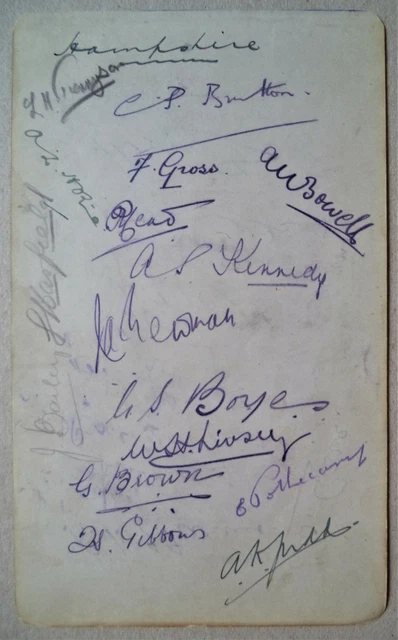 Hampshire
L H Tennyson
C. P. Brutton.
A. L. Hosie
F. Gross.
A W Bowell
P Mead
A S Kennedy
J A Newman
J. Bailey
G S Boyes
W S H Livsey
G. Brown
E Pothecary
H. Gibbons
A. K. Judd.